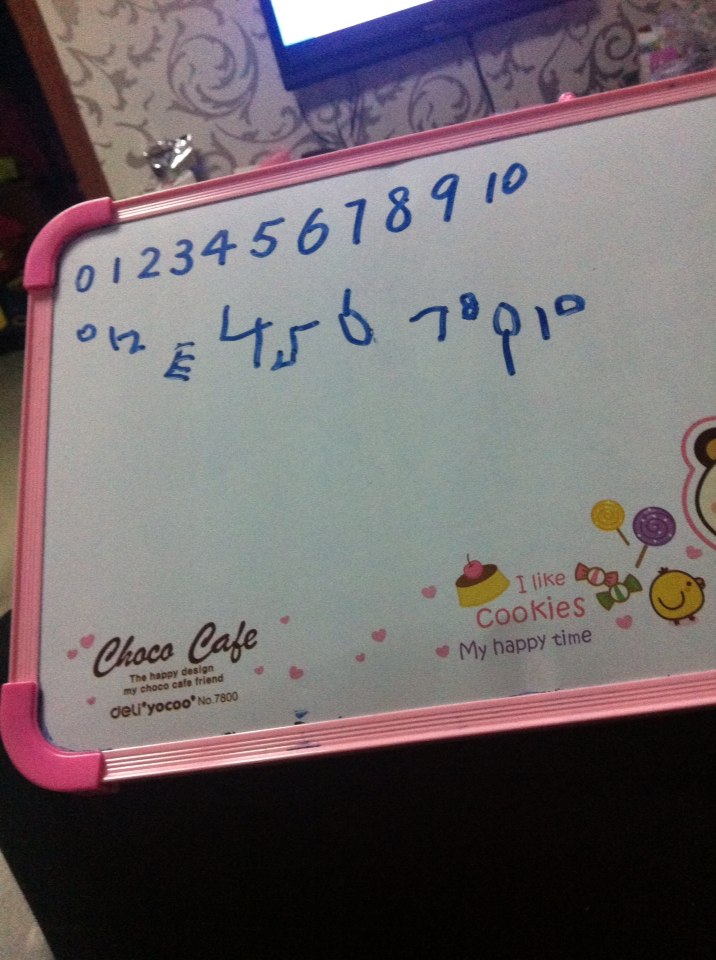 0 1 2 3 4 5 6 7 8 9 10
0 1 2 3 4 5 6 7 8 9 10
I like
Cookies
My happy time
Choco Cafe
The happy design
my choco cafe friend
deli "yocoo" No.7800